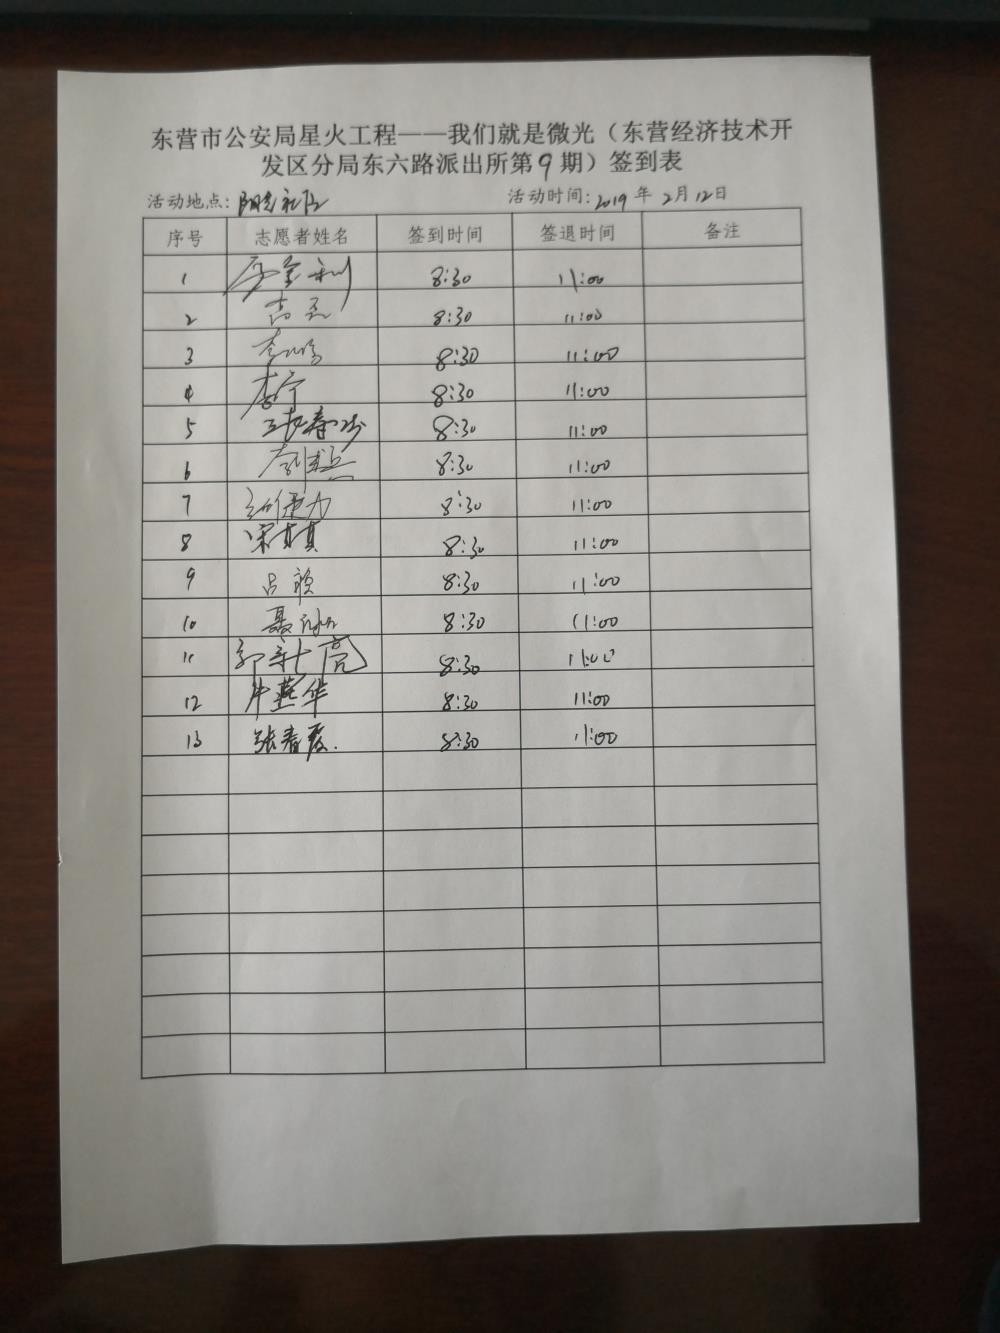 东营市公安局星火工程——我们就是微光（东营经济技术开
发区分局东六路派出所第9期）签到表
活动地点：阳光社区 活动时间：2019年2月12日
序号 志愿者姓名 签到时间 签退时间 备注
1 8:30 11:00
2 高磊 8:30 11:00
3 8:30 11:00
4 李宁 8:30 11:00
5 8:30 11:00
6 8:30 11:00
7 8:30 11:00
8 宋真真 8:30 11:00
9 吕颖 8:30 11:00
10 聂 8:30 11:00
11 郭新亮 8:30 11:00
12 牛燕华 8:30 11:00
13 张春霞. 8:30 11:00